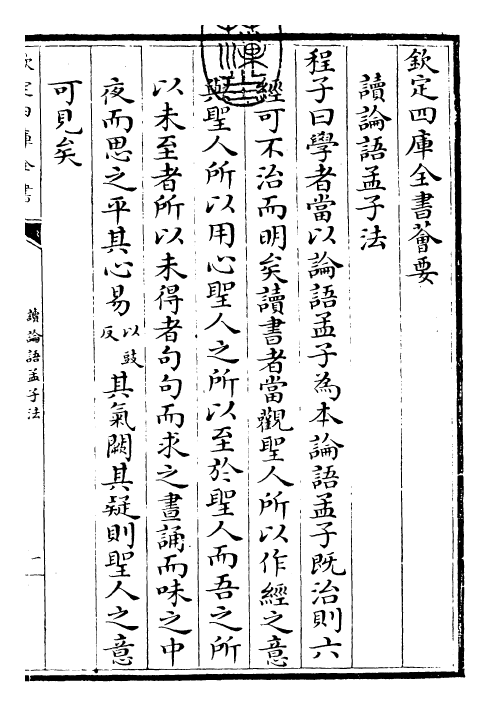 欽定四庫全書薈要
讀論語孟子法
程子曰學者當以論語孟子為本論語孟子既治則六
經可不治而明矣讀書者當觀聖人所以作經之意
與聖人所以用心聖人之所以至於聖人而吾之所
以未至者所以未得者句句而求之晝誦而味之中
夜而思之平其心易以豉反其氣闕其疑則聖人之意
可見矣
欽定四庫全書
讀論語孟子法
一